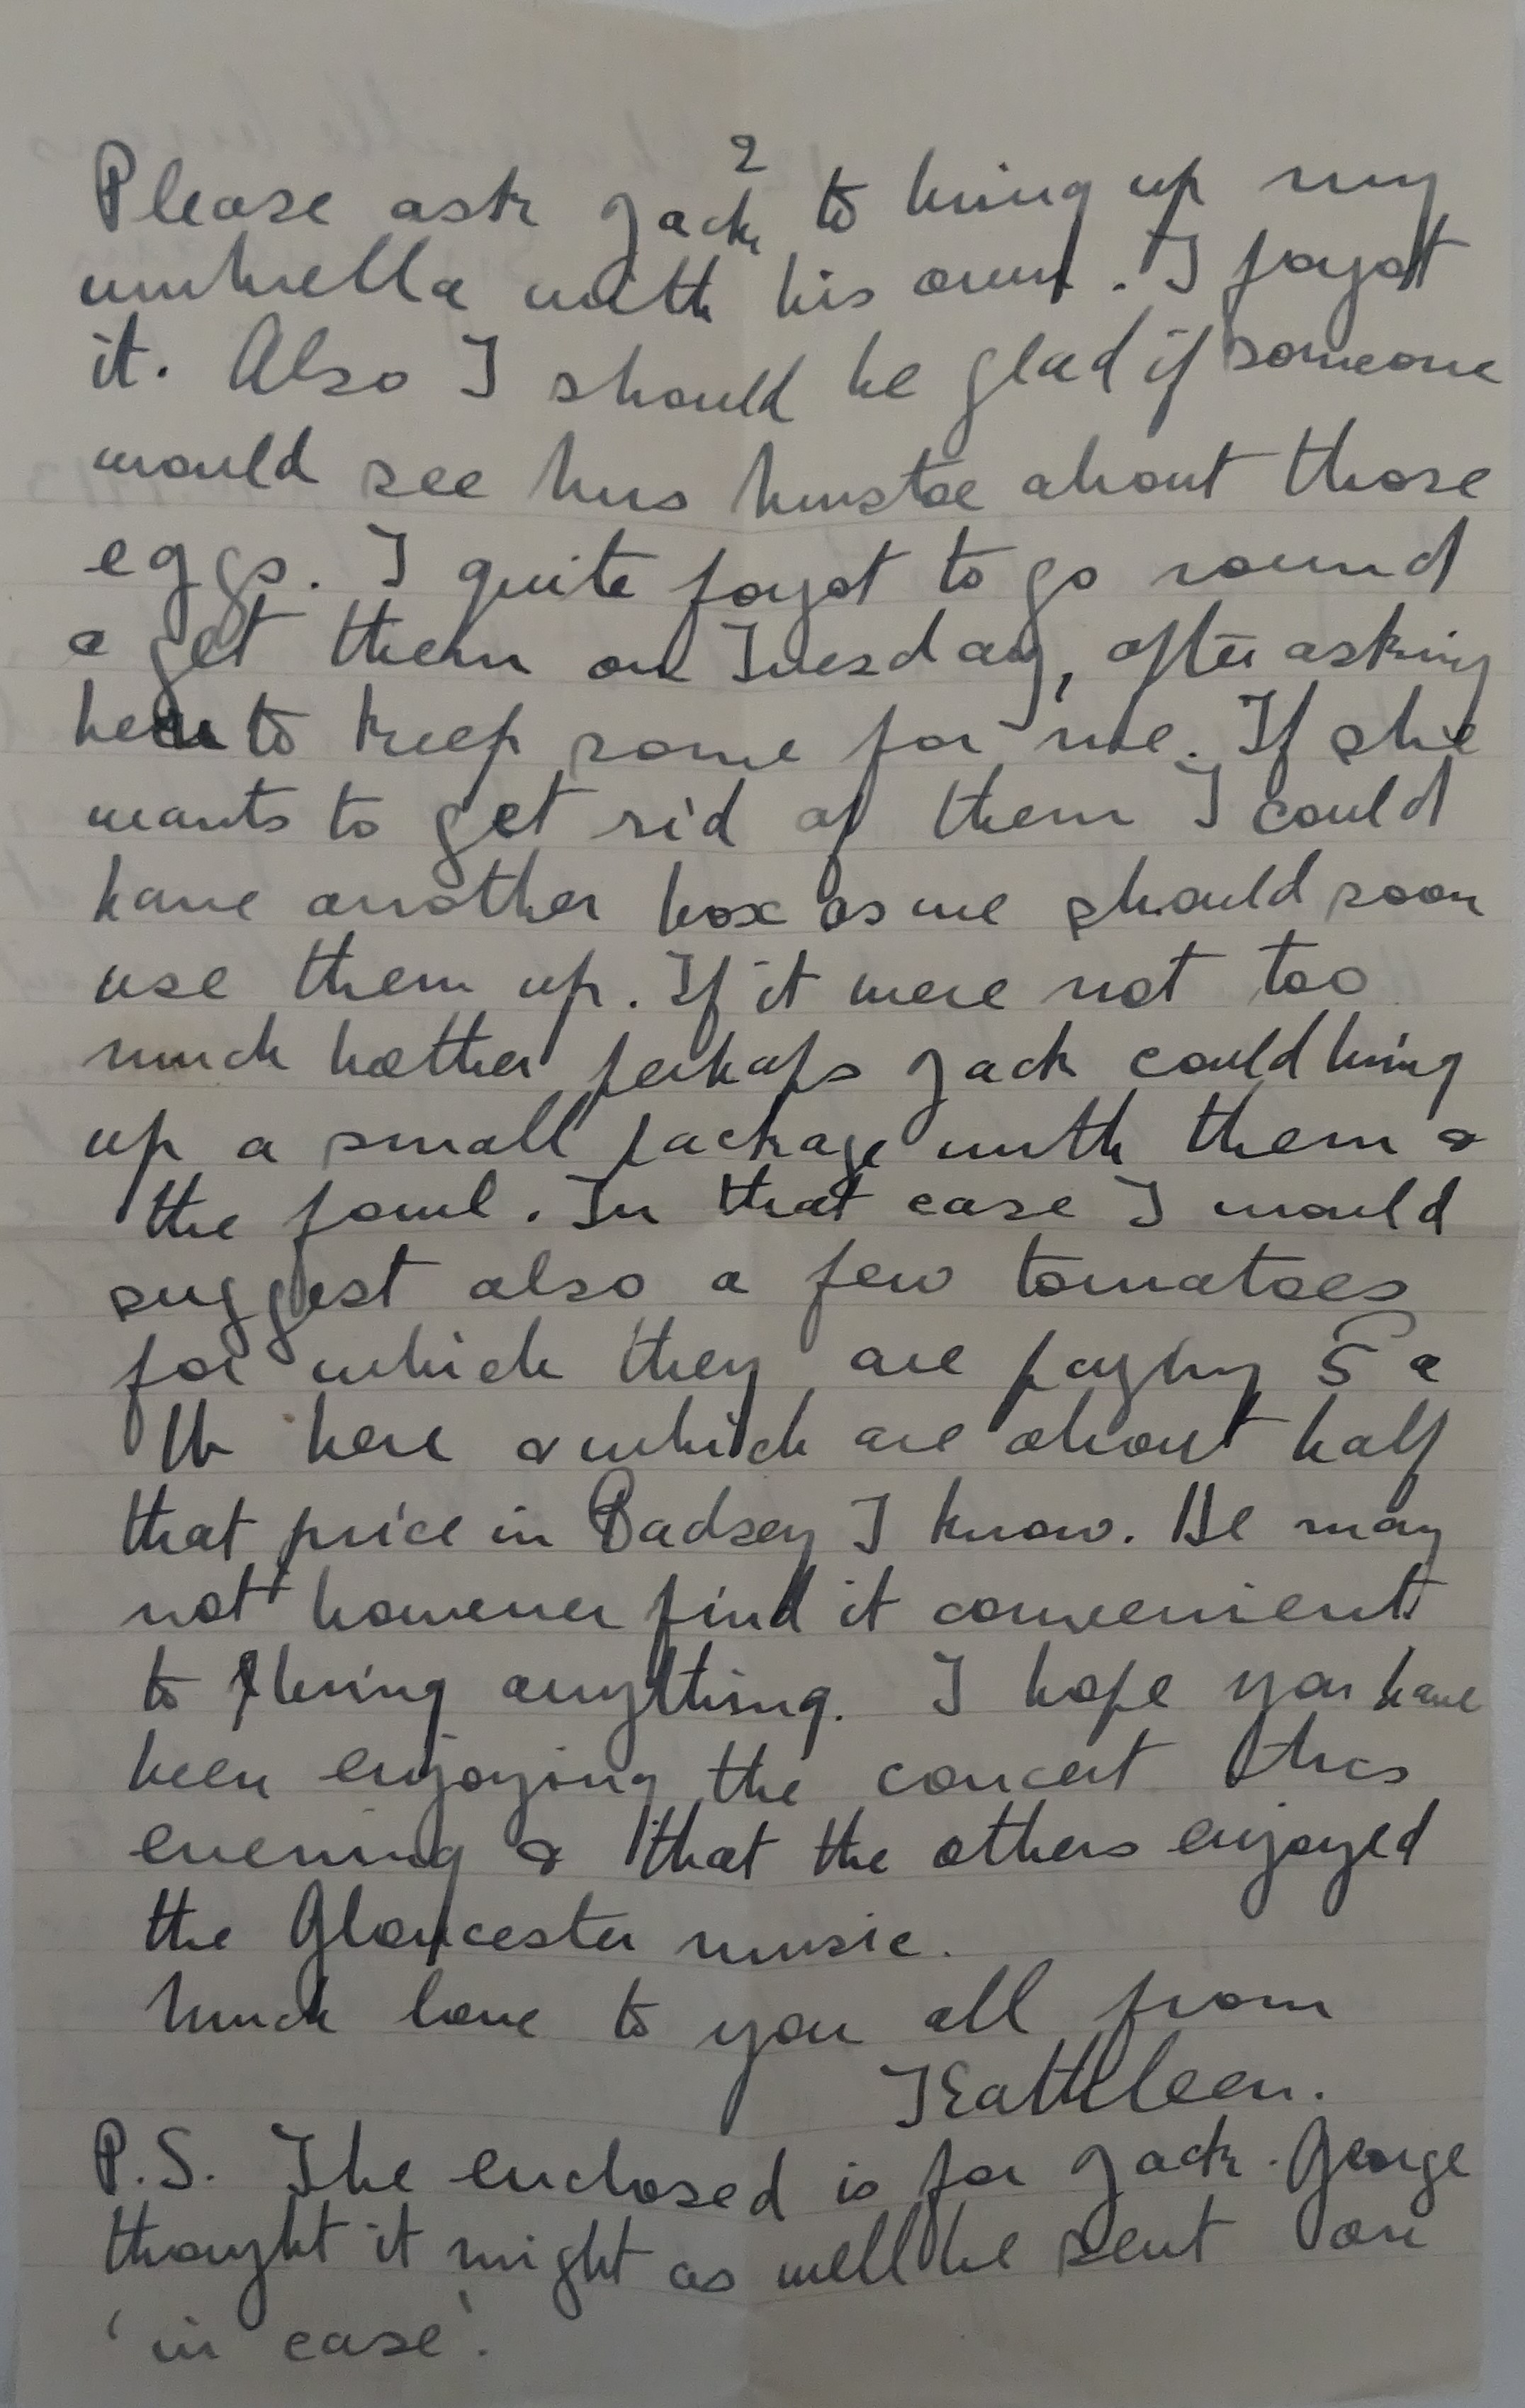 2
Please ask Jack to bring up my
umbrella with his own. I forgot
it. Also I should be glad if someone
would see Mrs about those
eggs. I quite forgot to go round
& get them on Tuesday, after asking
her to keep some for me. If she
wants to get rid of them I could
have another box as we should soon
use them up. If it were not too
much bother perhaps Jack could bring
up a small package with them &
the fowl. In that case I would
suggest also a few tomatoes
for which they are paying 5 a
lb here & which are about half
that price in Badsey I know. He may
not however find it convenient
to bring anything. I hope you have
been enjoying the concert this
evening & that the others enjoyed
the Gloucester music.
Much love to you all from
Kathleen.
P.S. The enclosed is for Jack. George
thought it might as well be sent on
'in case'.